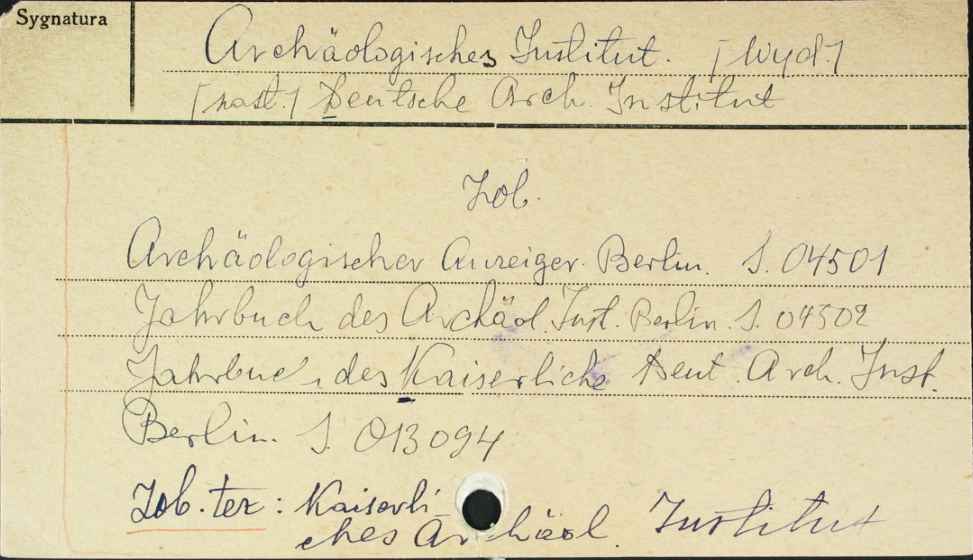 Sygnatura
Archäologisches Institut. [wyd.]
[nast.] Deutsche Arch. Institut
Zob.
Archäologischer Anzeiger. Berlin. S. 04501
Jahrbuch des Archäol. Inst. Berlin. S. 04502
Jahrbuch des Kaiserlichs Deut. Arch. Inst.
Berlin. S 013094
Zob. też: Kaiserli-
ches Archäol. Institut